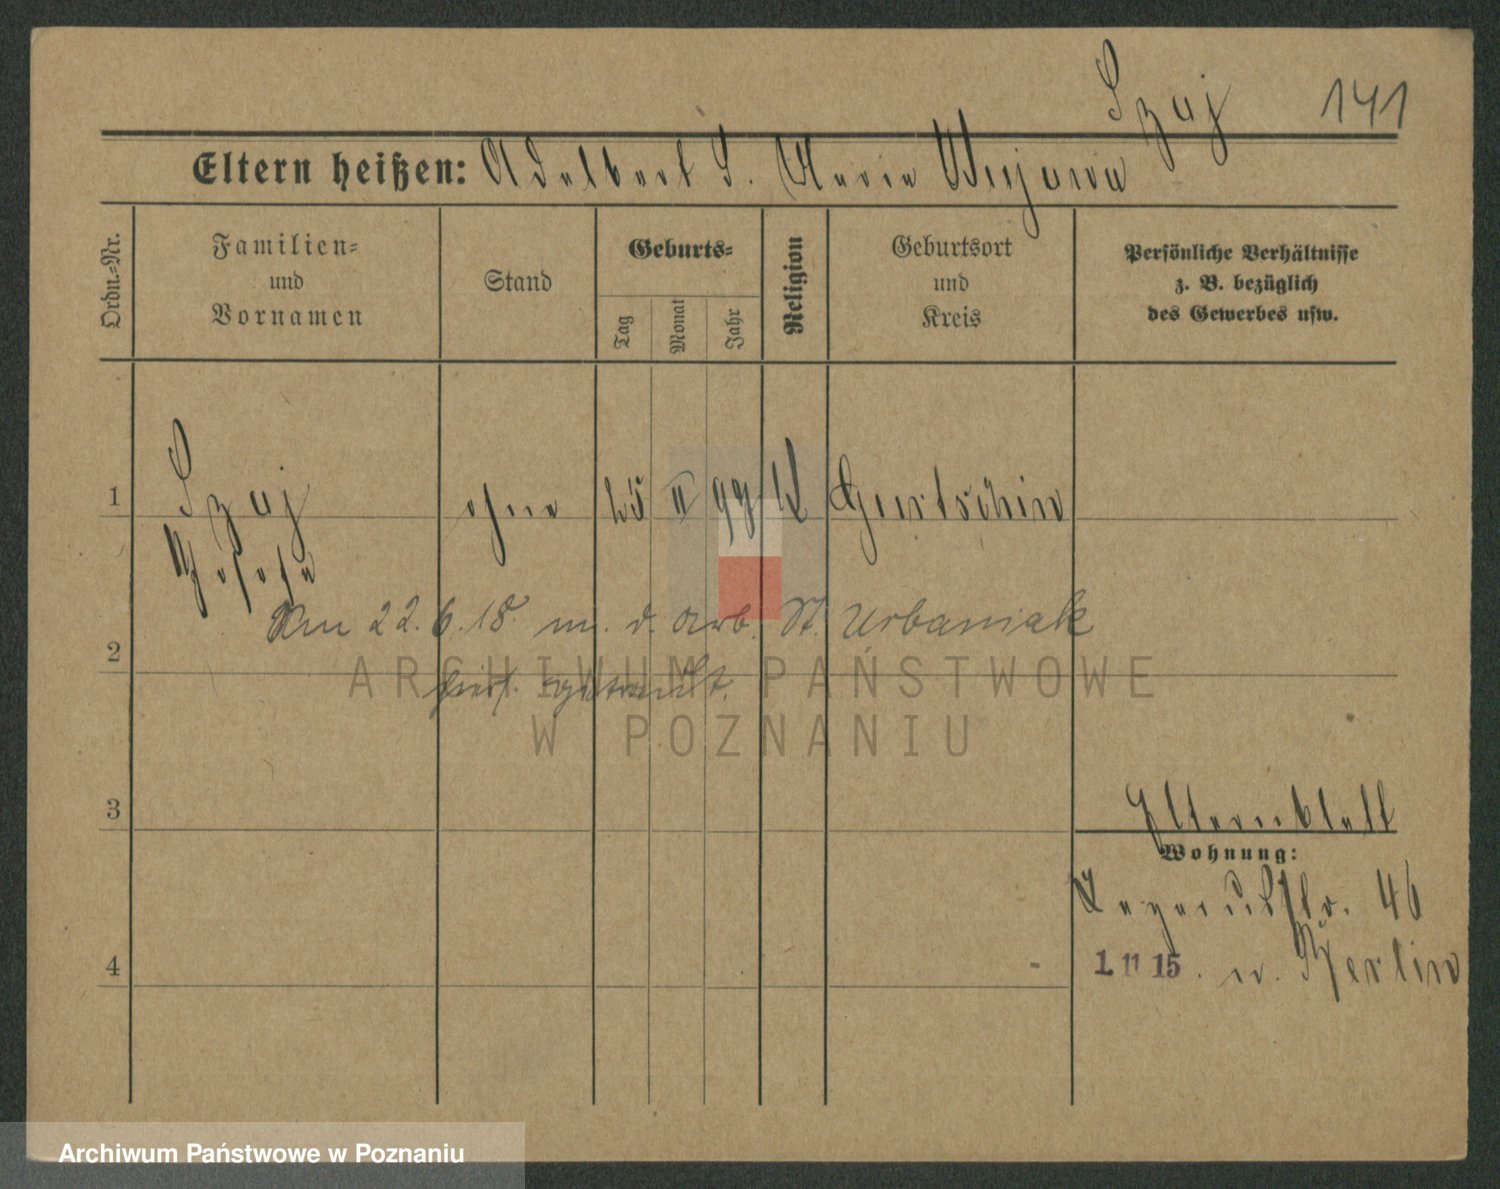 Szuj 141
Eltern heißen: Adalbert S. Maria Wujowa
Ordn.=Nr.
Familien=
und
Vornamen
Stand
Geburts=
Tag
Monat
Jahr
Religion
Geburtsort
und
Kreis
Persönliche Verhältnisse
z. B. bezüglich
des Gewerbes usw.
1 Szuj ohne 25 II 99 K Gurtschin
Josefa
Am 22.6.18. m. d. Arb. St. Urbaniak
2 hier getraut.
3
Elternblatt
Wohnung:
46
4 1. 11 15. n. Berlin
ARCHIWUM PAŃSTWOWE
W POZNANIU
Archiwum Państwowe w Poznaniu